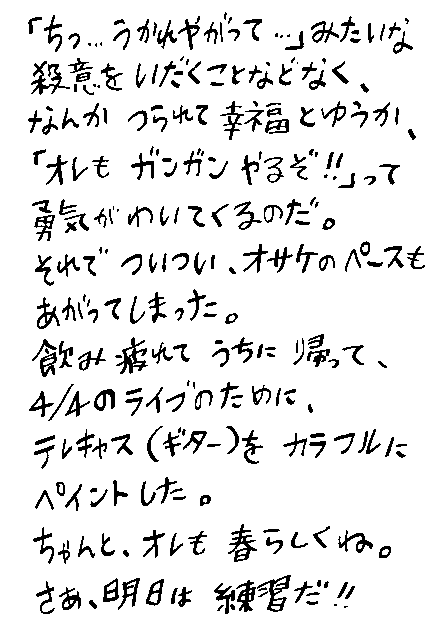 「ちっ…うかれやがって…」みたいな
殺意をいだくことなどなく、
なんか つられて 幸福とゆうか、
「オレも ガンガン やるぞ!!」って
勇気が わいてくるのだ。
それで ついつい、オサケのペースも
あがってしまった。
飲み疲れて うちに 帰って、
4/4のライブのために、
テレキャス(ギター)を カラフルに
ペイントした。
ちゃんと、オレも 春らしくね。
さあ、明日は 練習だ!!